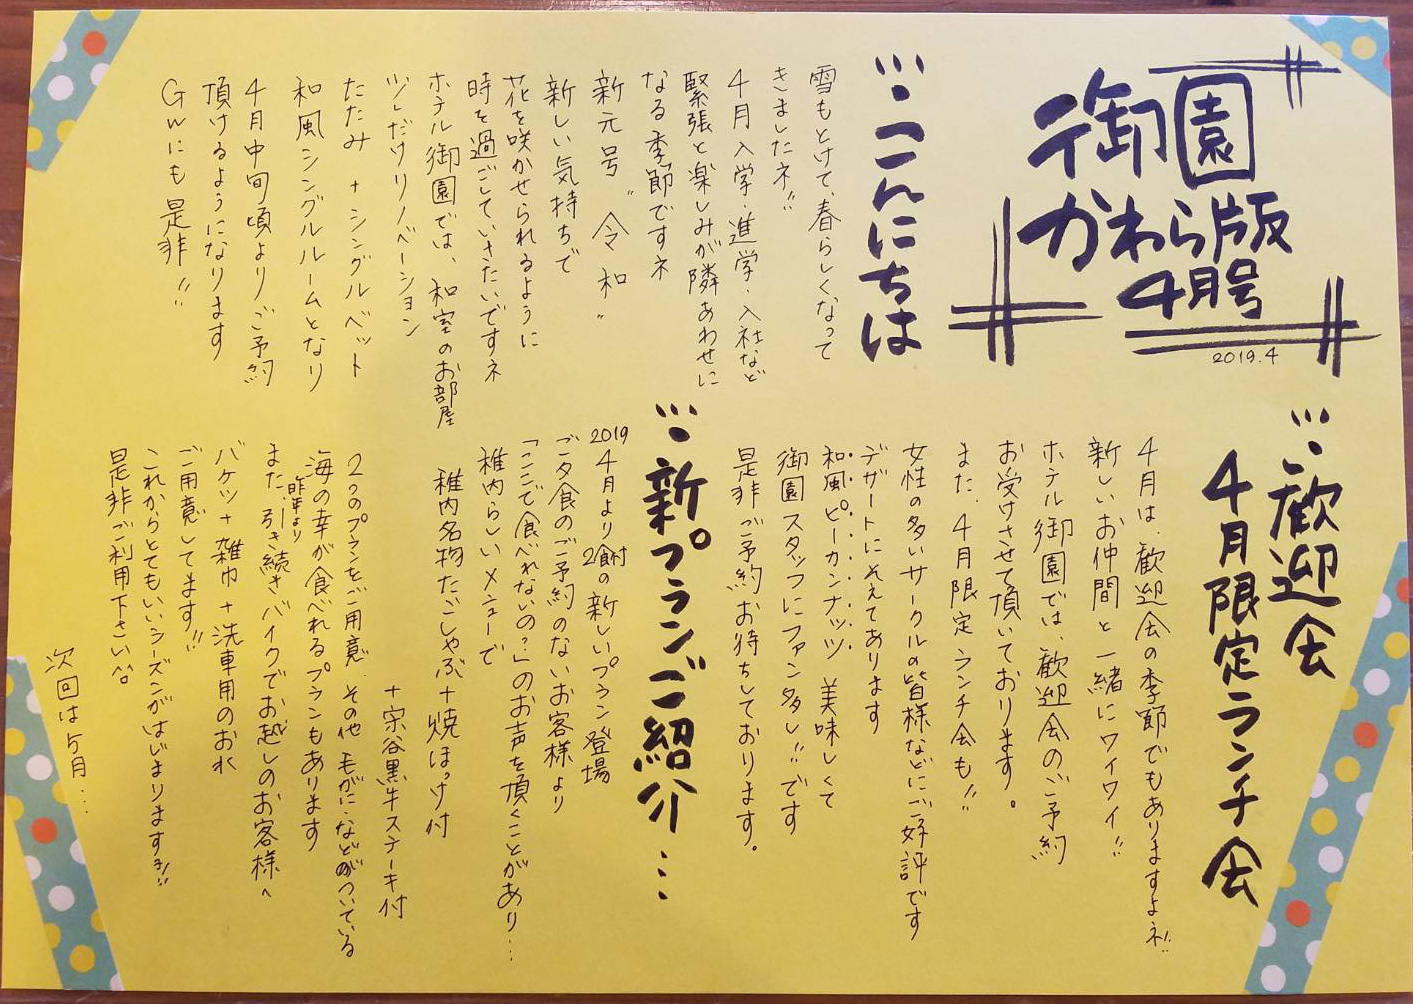 御園
かわら版
4月号
2019.4
こんにちは
雪もとけて、春らしくなって
きましたネ!!
4月入学・進学・入社など
緊張と楽しみが隣あわせに
なる季節ですネ
新元号 "令和"
新しい気持ちで
花を咲かせられるように
時を過ごしていきたいですネ
ホテル御園では、和室のお部屋
少しだけリノベーション
たたみ + シングルベット
和風シングルルームとなり
4月中旬頃よりご予約
頂けるようになります
GWにも是非!!
歓迎会
4月限定ランチ会
4月は、歓迎会の季節でもありますよネ!!
新しいお仲間と一緒にワイワイ!!
ホテル御園では、歓迎会のご予約
お受けさせて頂いております。
また、4月限定ランチ会も!!
女性の多いサークルの皆様などにご好評です
デザートにそえてあります
和風ピーカンナッツ 美味しくて
御園スタッフにファン多し!!です
是非ご予約お待ちしております。
新プランご紹介…
2019
4月より2食付の新しいプラン登場
ご夕食のご予約のないお客様より
「ここで食べれないの?」のお声を頂くことがあり…
稚内らしいメニューで
稚内名物たこしゃぶ+焼ほっけ付
+宗谷黒牛ステーキ付
2つのプランをご用意 その他毛がになどがついている
海の幸が食べれるプランもあります
また、昨年より引き続きバイクでお越しのお客様へ
バケツ+雑巾+洗車用のお水
ご用意してます!!
これからとてもいいシーズンがはじまりますヨ!!
是非ご利用下さい^^。
次回は5月…